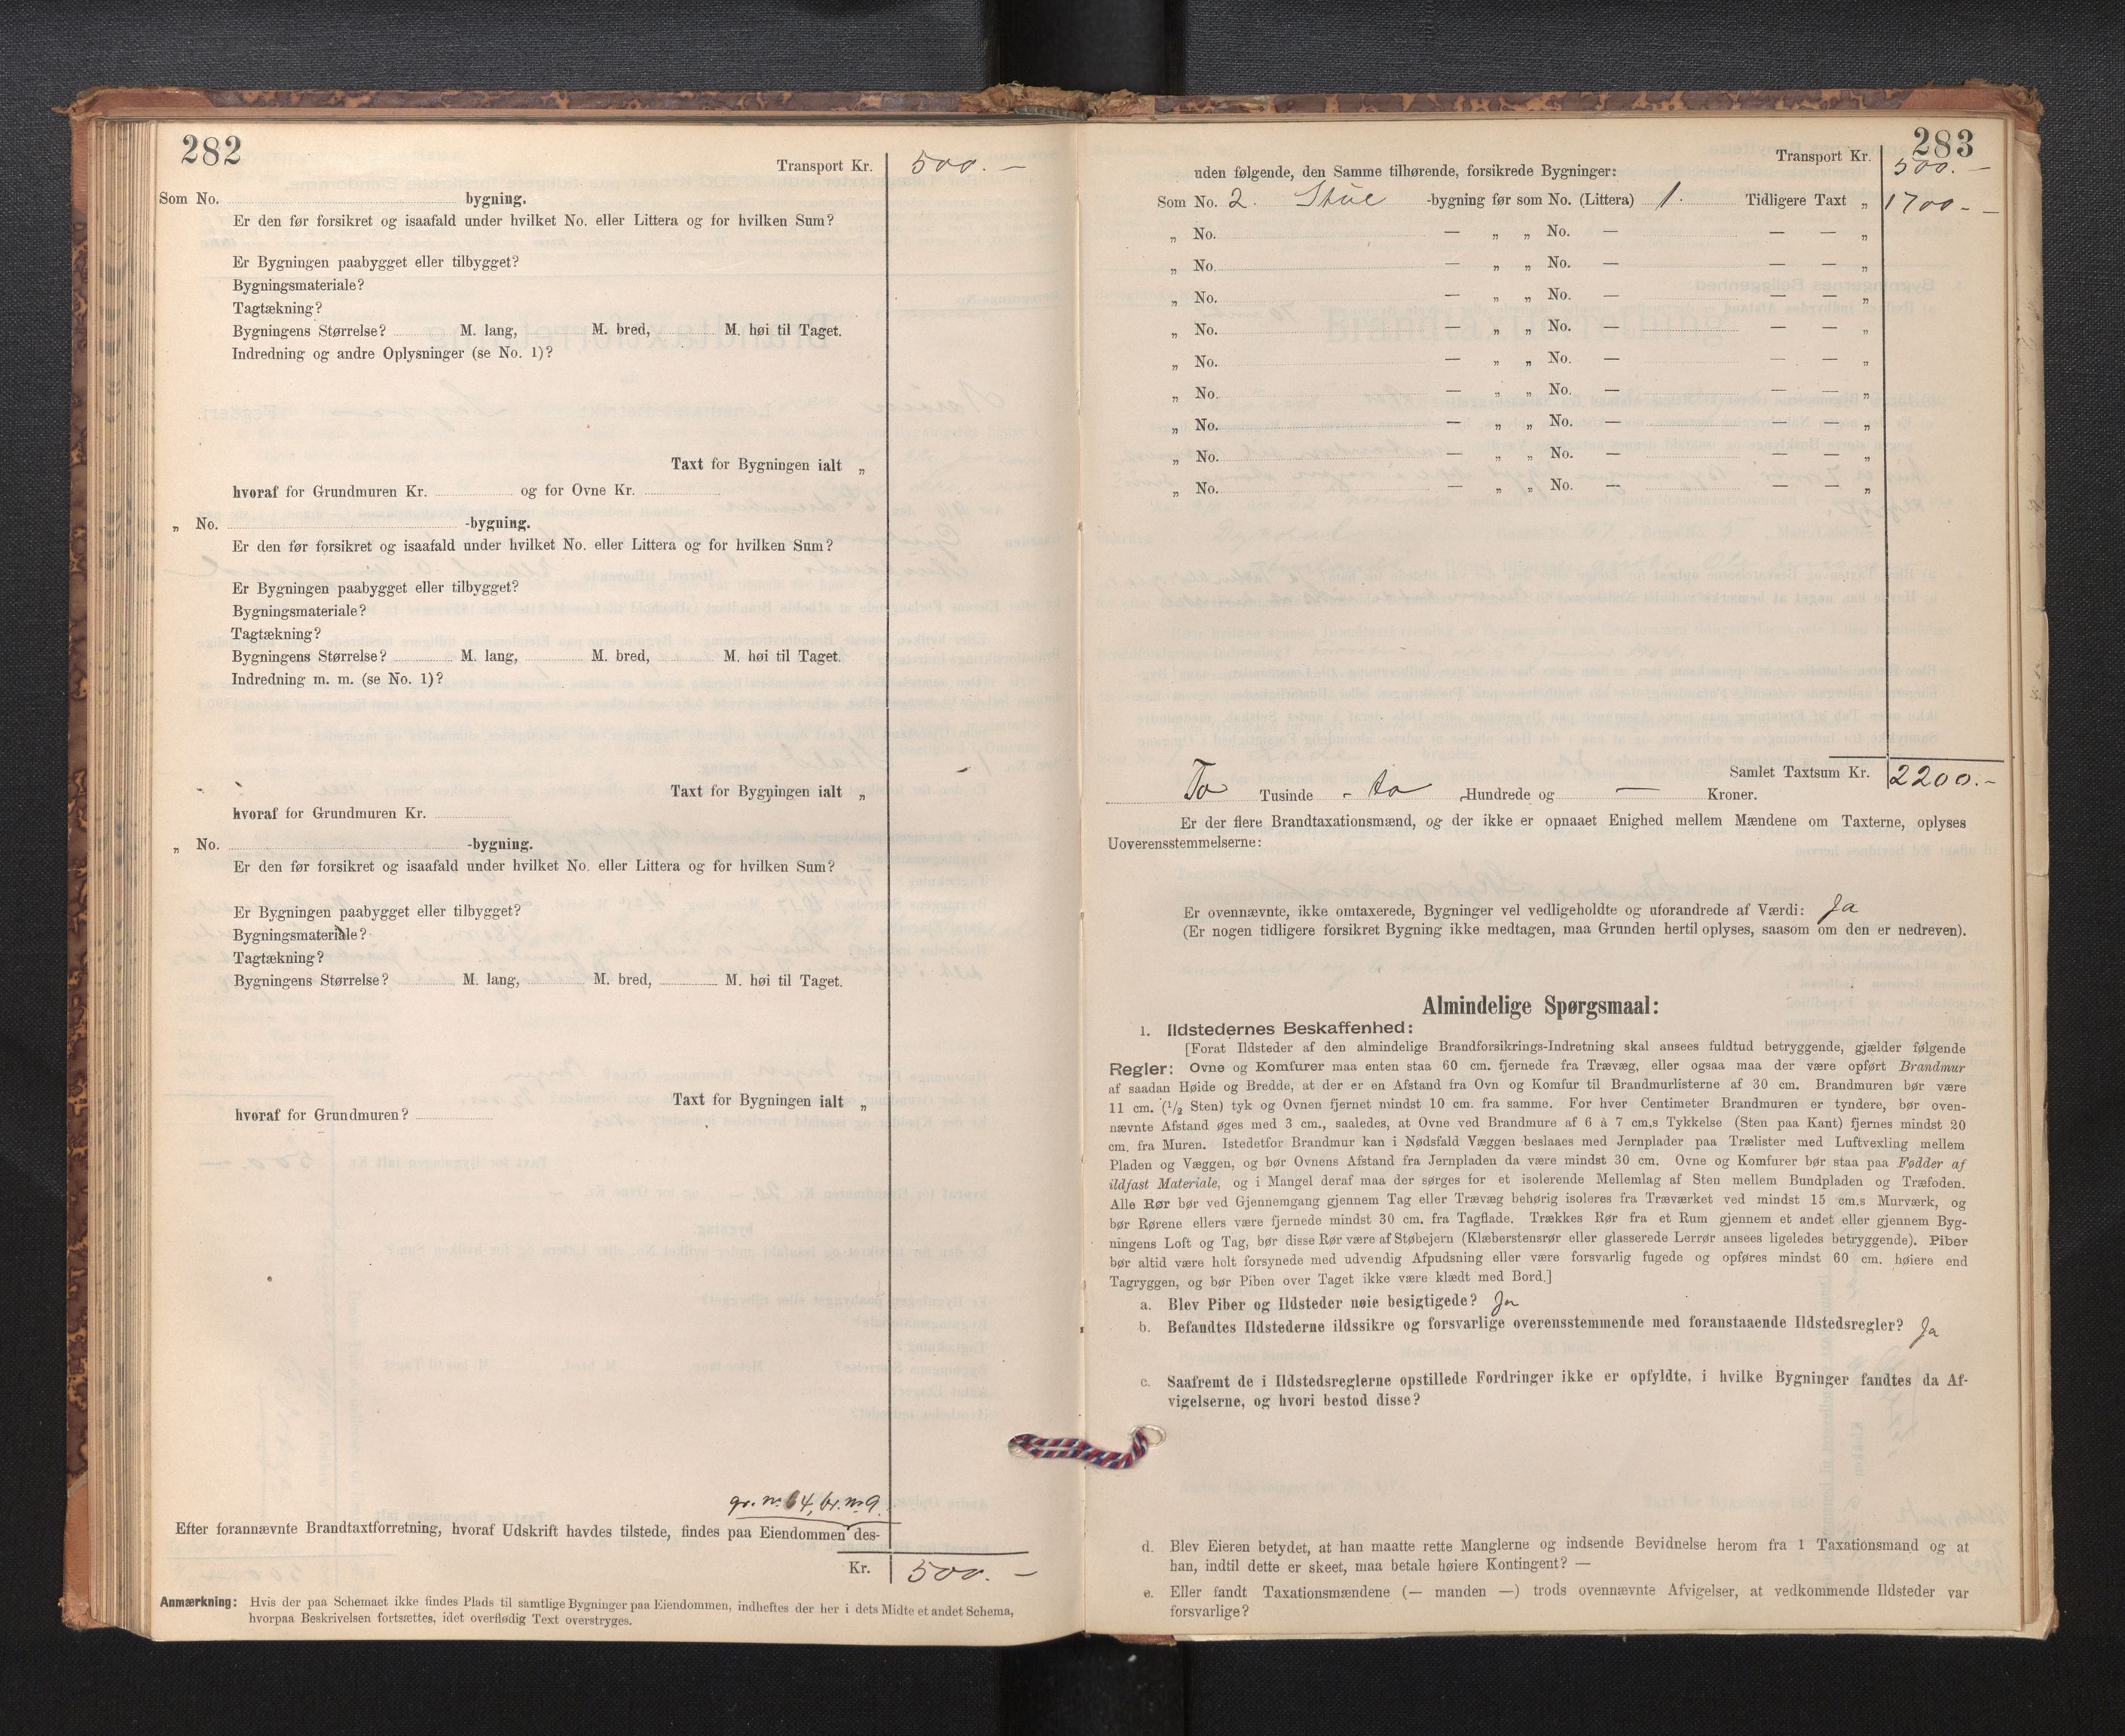 282
Transport Kr. 500. —
Som No. bygning.
Er den før forsikret og isaafald under hvilket No. eller Littera og for hvilken Sum?
Er Bygningen paabygget eller tilbygget?
Bygningsmateriale?
Tagtækning?
Bygningens Størrelse? M. lang, M. bred, M. høi til Taget.
Indredning og andre Oplysninger (se No. 1)?
Taxt for Bygningen ialt „
hvoraf for Grundmuren Kr. og for Ovne Kr.
„ No. -bygning.
Er den før forsikret og isaafald under hvilket No. eller Littera og for hvilken Sum?
Er Bygningen paabygget eller tilbygget?
Bygningsmateriale?
Tagtækning?
Bygningens Størrelse? M. lang, M. bred, M. høi til Taget.
Indredning m. m. (se No. 1)?
Taxt for Bygningen ialt „
hvoraf for Grundmuren Kr.
„ No. -bygning.
Er den før forsikret og isaafald under hvilket No. eller Littera og for hvilken Sum?
Er Bygningen paabygget eller tilbygget?
Bygningsmateriale?
Tagtækning?
Bygningens Størrelse? M. lang, M. bred, M. høi til Taget.
Taxt for Bygningen ialt „
hvoraf for Grundmuren?
gr. nr. 64, br. nr 9.
Efter forannævnte Brandtaxtforretning, hvoraf Udskrift havdes tilstede, findes paa Eiendommen des-
Kr. 500. —
Anmærkning: Hvis der paa Schemaet ikke findes Plads til samtlige Bygninger paa Eiendommen, indheftes der her i dets Midte et andet Schema,
hvorpaa Beskrivelsen fortsættes, idet overflødig Text overstryges.
283
Transport Kr. 500. —
uden følgende, den Samme tilhørende, forsikrede Bygninger:
Som No. 2. Stue -bygning før som No. (Littera) 1. Tidligere Taxt „ 1700 - —
„ No. — „ „ No. — — — „
„ No. — „ „ No. — — — „
„ No. — „ „ No. — — — „
„ No. — „ „ No. — — — „
„ No. — „ „ No. — — — „
„ No. — „ „ No. — — — „
„ No. — „ „ No. — — — „
„ No. — „ „ No. — — — „
„ No. — „ „ No. — — — „
Samlet Taxtsum Kr. 2200. -
To Tusinde - to Hundrede og — Kroner.
Er der flere Brandtaxationsmænd, og der ikke er opnaaet Enighed mellem Mændene om Taxterne, oplyses
Uoverensstemmelserne:
Er ovennævnte, ikke omtaxerede, Bygninger vel vedligeholdte og uforandrede af Værdi: Ja
(Er nogen tidligere forsikret Bygning ikke medtagen, maa Grunden hertil oplyses, saasom om den er nedreven).
Almindelige Spørgsmaal:
1. Ildstedernes Beskaffenhed:
[Forat Ildsteder af den almindelige Brandforsikrings-Indretning skal ansees fuldtud betryggende, gjælder følgende
Regler: Ovne og Komfurer maa enten staa 60 cm. fjernede fra Trævæg, eller ogsaa maa der være opført Brandmur
af saadan Høide og Bredde, at der er en Afstand fra Ovn og Komfur til Brandmurlisterne af 30 cm. Brandmuren bør være
11 cm. (1/2 Sten) tyk og Ovnen fjernet mindst 10 cm. fra samme. For hver Centimeter Brandmuren er tyndere, bør oven-
nævnte Afstand øges med 3 cm., saaledes, at Ovne ved Brandmure af 6 à 7 cm.s Tykkelse (Sten paa Kant) fjernes mindst 20
cm. fra Muren. Istedetfor Brandmur kan i Nødsfald Væggen beslaaes med Jernplader paa Trælister med Luftvexling mellem
Pladen og Væggen, og bør Ovnens Afstand fra Jernpladen da være mindst 30 cm. Ovne og Komfurer bør staa paa Fødder af
ildfast Materiale, og i Mangel deraf maa der sørges for et isolerende Mellemlag af Sten mellem Bundpladen og Træfoden.
Alle Rør bør ved Gjennemgang gjennem Tag eller Trævæg behørig isoleres fra Træværket ved mindst 15 cm.s Murværk, og
bør Rørene ellers være fjernede mindst 30 cm. fra Tagflade. Trækkes Rør fra et Rum gjennem et andet eller gjennem Byg-
ningens Loft og Tag, bør disse Rør være af Støbejern (Klæberstensrør eller glasserede Lerrør ansees ligeledes betryggende). Piber
bør altid være helt forsynede med udvendig Afpudsning eller være forsvarlig fugede og opføres mindst 60 cm. høiere end
Tagryggen, og bør Piben over Taget ikke være klædt med Bord.]
a. Blev Piber og Ildsteder nøie besigtigede? Ja
b. Befandtes Ildstederne ildssikre og forsvarlige overensstemmende med foranstaaende Ildstedsregler? Ja
c. Saafremt de i Ildstedsreglerne opstillede Fordringer ikke er opfyldte, i hvilke Bygninger fandtes da Af-
vigelserne, og hvori bestod disse?
d. Blev Eieren betydet, at han maatte rette Manglerne og indsende Bevidnelse herom fra 1 Taxationsmand og at
han, indtil dette er skeet, maa betale høiere Kontingent? —
e. Eller fandt Taxationsmændene (— manden —) trods ovennævnte Afvigelser, at vedkommende Ildsteder var
forsvarlige?